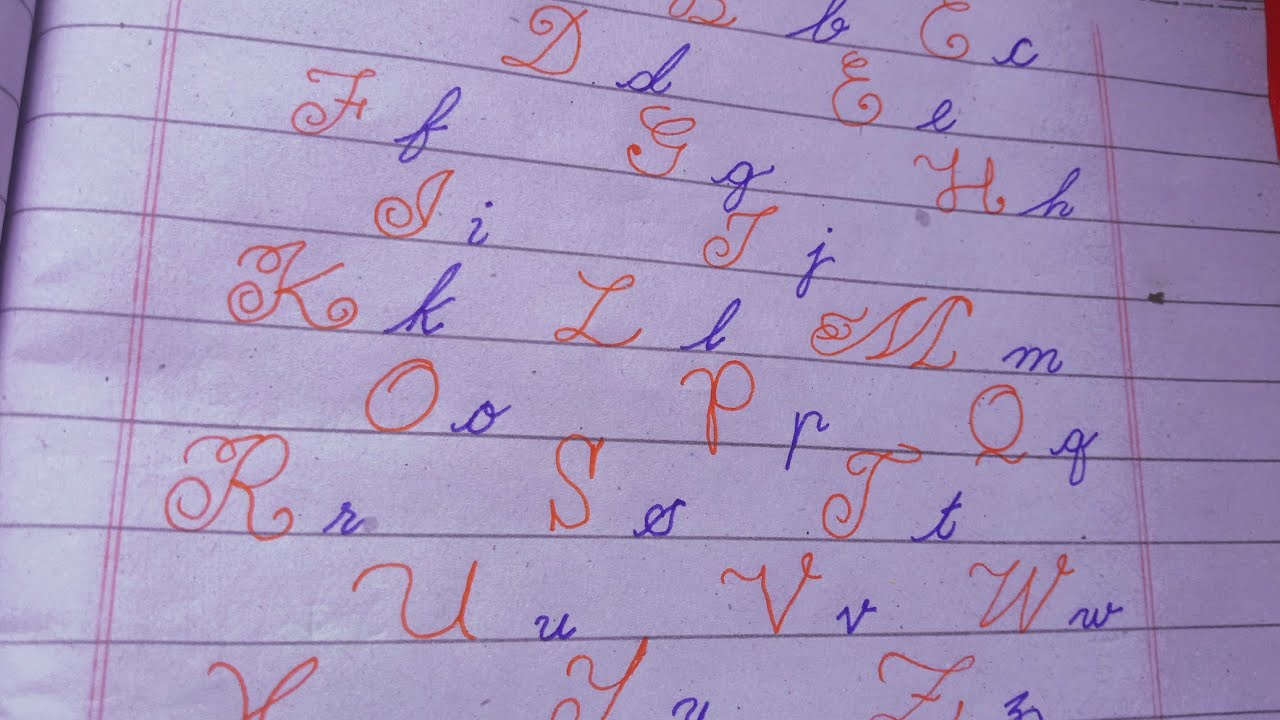 B b C c
D d E e
F f G g H h
I i J j
K k L l M m
O o P p Q q
R r S s T t
U u V v W w
Y y Z z